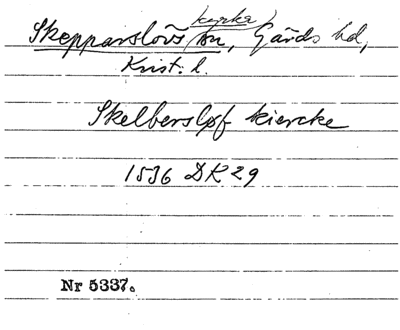 kyrka
Skepparslövs sn, Gärds hd,
Krist. l.
Skelberslpf kiercke
1536 DK 29
Nr 5337.